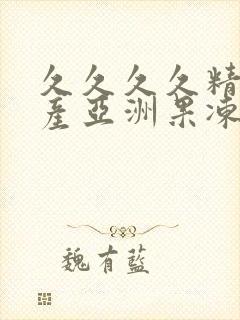 久久久久精
産亞洲果凍
魏有藍